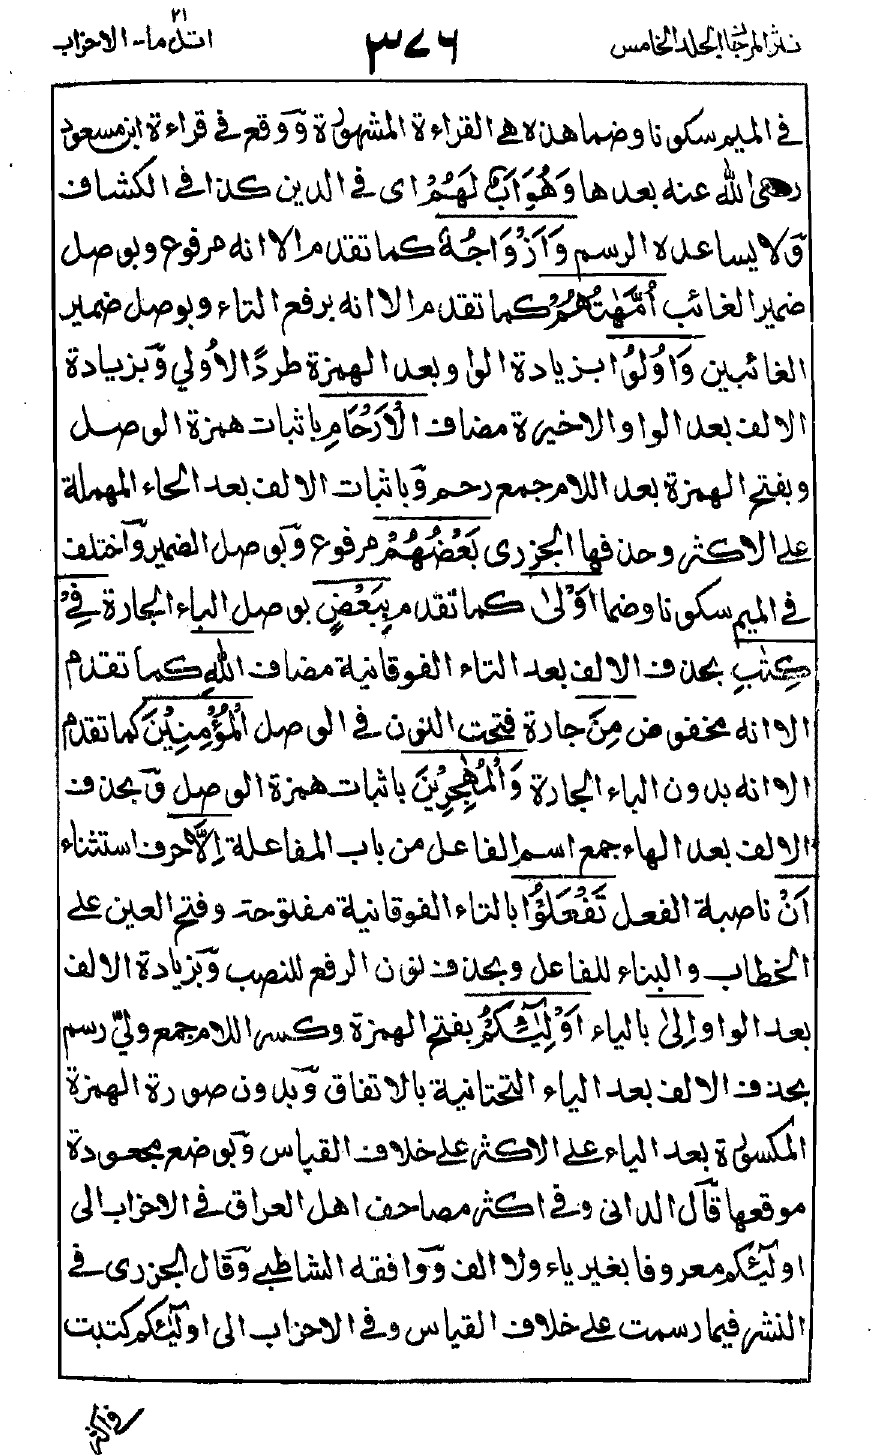 نثر المرجان الجلد الخامس ٣٧٦ اتل ما- الاحزاب ٢١
في الميم سكونا وضما هذه هي القراءة المشهورة وَوقع في قراءة ابن مسعود
رضي الله عنه بعدها وَهُوَ اَبٌ لَهُمْ اى في الدين كذا في الكشاف
وَلا يساعده الرسم وَاَزْوَاجُهٗ كما تقدم الا انه مرفوع وبوصل
ضمير الغائب اُمَّهٰتُهُمْ كما تقدم الا انه برفع التاء وبوصل ضمير
الغائبين وَاُولُوا بزيادة الواو بعد الهمزة طردًا لأولي وَبزيادة
الالف بعد الواو الاخيرة مضاف الْاَرْحَامِ باثبات همزة الوصل
وبفتح الهمزة بعد اللام جمع رحم وَباثبات الالف بعد الحاء المهملة
على الاكثر وحذفها الجزرى بَعْضُهُمْ مرفوع وَبوصل الضمير وَاختلف
في الميم سكونا وضما اَوْلىٰ كما تقدم بِبَعْضٍ بوصل الباء الجارة فِيْ
كِتٰبِ بحذف الالف بعد التاء الفوقانية مضاف اللهِ كما تقدم
الا انه مخفوض مِنَ جارة فتحت النون في الوصل الْمُؤْمِنِيْنَ كما تقدم
الا انه بدون الباء الجارة وَالْمُهٰجِرِيْنَ باثبات همزة الوصل وَبحذف
الالف بعد الهاء جمع اسم الفاعل من باب المفاعلة اِلَّا حرف استثناء
اَنْ ناصبة الفعل تَفْعَلُوْا بالتاء الفوقانية مفتوحة وفتح العين على
الخطاب والبناء للفاعل وبحذف نون الرفع للنصب وَبزيادة الالف
بعد الواو اِلىٰ بالياء اَوْلِيٰٓئِكُمْ بفتح الهمزة وكسر اللام جمع وليّ رسم
بحذف الالف بعد الياء التحتانية بالاتفاق وَبدون صورة الهمزة
المكسورة بعد الياء على الاكثر على خلاف القياس وَبوضع مجعودة
موقعها قَال الدانى وفي اكثر مصاحف اهل العراق في الاحزاب الى
اوليٰٓئكم معروفا بغير ياء ولا الف وَوافقه الشاطبي وَقال الجزرى في
النشر فيما رسمت على خلاف القياس وفي الاحزاب الى اوليٰٓئكم كتبت